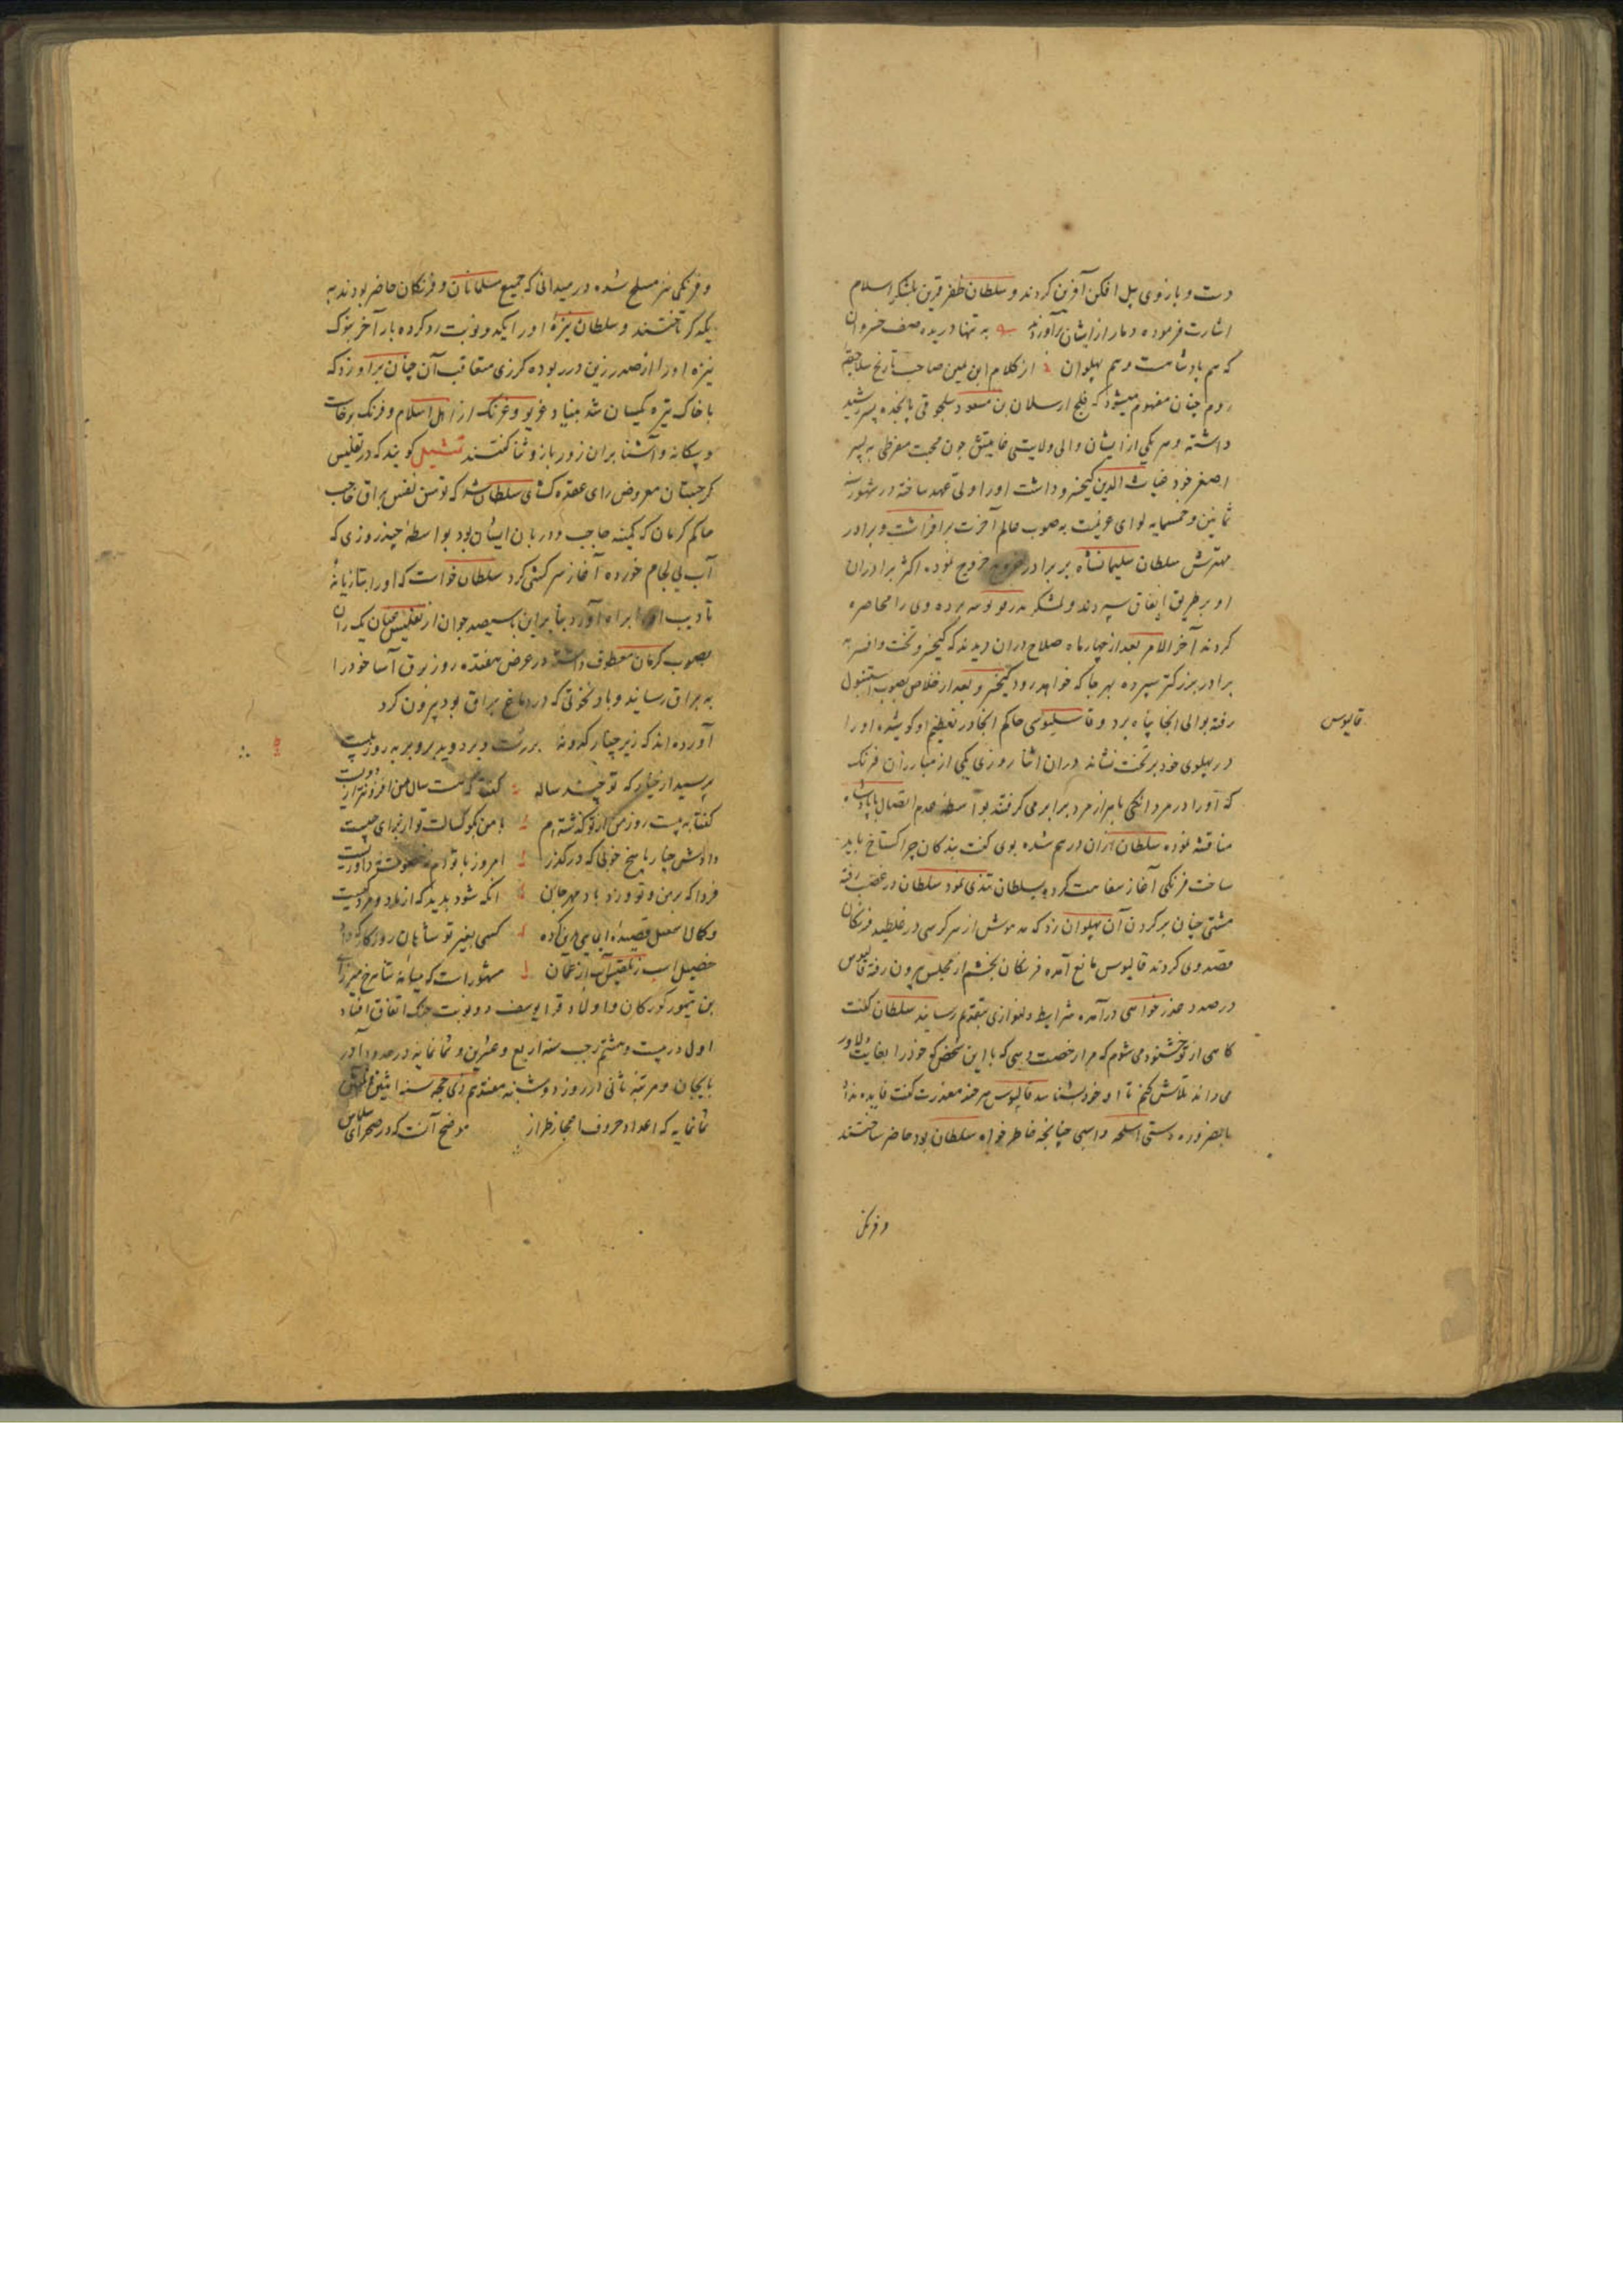 دست و بازوی پیل افکن آفرین کردند و سلطان ظفر قرین بلشکر اسلام
اشارت فرموده دمار از ایشان برآوردند به تنها دریده صف خسروان
که هم پادشاهست و هم پهلوان از کلام ابن صاحب تاریخ سلاجقه
روم چنان مفهوم میشود که قلج ارسلان بن مسعود سلجوقی پانجده پسر رشید
داشته و هر یکی از ایشان والی ولایتی چون محبت مفرطی به پسر
اصغر خود غیاث الدین کیخسرو داشت او را ولی عهد ساخته در شهور سنه
ثمانین و خمسمایه لوای عزیمت به صوب عالم آخرت برافراشت و برادر
مهترش سلطان سلیمانشاه بر برادر خروج نموده اکثر برادران
او بر طریق اتفاق سپردند و لشکر بدر برده وی را محاصره
کردند آخر الامر بعد از چهار ماه صلاح دران دیدند که کیخسرو تخت و افسر به
برادر بزرکتر سپرده بهر جا که خواهد رود کیخسرو بعد از خلاص بصوب استنبول
رفته بوالی انجا پناه برد و حاکم انجا در تعظیم او کوشیده او را
قالیوس
در پهلوی خود بر تخت نشاند دران اثنا روزی یکی از مبارزان فرنک
که او را در مردانکی با هزار مرد برابر می کرفتند بواسطه عدم اتصال با پادشاه
مناقشه نموده سلطان ازان درهم شده بوی کفت بندکان چرا کستاخ باید
ساخت فرنکی آغاز سفاهت کرده بسلطان تندی نمود سلطان در غضب رفته
مشتی چنان بر کردن آن پهلوان زد که مدهوش از سر کرسی در غلطید فرنکان
قصد وی کردند قالیوس مانع آمده فرنکان بخشم از مجلس بیرون رفته قالیوس
در صدد عذر خواهی درآمده شرایط دلنوازی بتقدیم رسانید سلطان کفت
کاهی از تو خشنود می شوم که مرا رخصت دهی که با این شخص که خود را بغایت دلاور
می داند تلاش کنم تا او خود بشناسد قالیوس هر چند معذرت کفت فایده نداد
بالضروره دستی اسلحه و اسپی چنانچه خاطر خواه سلطان بود حاضر ساختند
و فرنکی
و فرنکی نیز مسلح شده در میدانی که جمیع مسلمانان و فرنکان حاضر بودند به
یکدیکر تاختند و سلطان نیزه او را یکدو نوبت رد کرده بار آخر بنوک
نیزه او را از صدر زین در ربوده کرزی متعاقب آن چنان بر او زد که
با خاک تیره یکسان شد بنیاد غریو و غرنک از اهل اسلام و فرنک برخاست
و بیکانه و آشنا بران زور بازو ثنا کفتند تمثیل کویند که در تفلیس
کرجستان معروض رای عقده کشای سلطان شد که توسن نفس براق حاجب
حاکم کرمان که کمینه حاجب و دربان ایشان بود بواسطه چند روزی که
آب بی لجام خورده آغاز سرکشی کرد سلطان خواست که او را بتازیانه
تادیب او را براه آورد بنابراین با سیصد جوان از تفلیس عنان یک ران
بصوب کرمان معطوف داشته در عرض هفده روز برق آسا خود را
به براق رساند و باد نخوتی که در دماغ براق بود بیرون کرد
آورده اند که زیر چنار کدوبنی بررست و بردوید برو بر به روز بیست
پرسید از چنار که تو چند ساله کفتا که هست سال من افزونتر از دویست
کفتا به بیست روز من از تو کذشته ام با من بکو کسالت تو از برای چیست
دادش چنار پاسخ خوبی که در کذر امروز با تو ام نه خصومت نه داوریست
فردا که بر من و تو وزد باد مهرجان آنکه شود پدید که از ما دو مرد کیست
و کمال اسمعیل قصیده کرده کسی بغیر تو شاهان روزکار که داد
خصیل اسب ز تفلیس و آب از عمان مشهور است که میانه شاهرخ میرزای
بن تیمور کورکان و اولاد قرا یوسف دو نوبت جنک اتفاق افتاد
اول در بیست و هشتم رجب سنه اربع و عشرین و ثمانمایه در حدود آذر
بایجان و مرتبه ثانی در روز دوشنبه هفدهم ذی حجه سنه اثنین و ثلثین
ثمانمایه که اعداد حروف اعجاز طراز موضح آنست که در صحرای سلماس